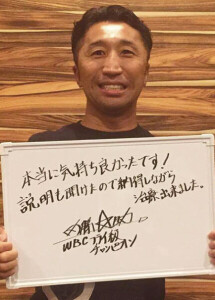 本当に気持ち良かったです!
説明も聞けたので納得しながら
治療出来ました。
WBCフライ級
チャンピオン